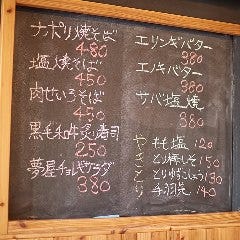 ナポリ焼そば
480
塩焼そば
450
肉せいろそば
450
黒毛和牛炙り寿司
250
夢屋チョレギサラダ
380
エリンギバター
380
エノキバター
380
サバ塩焼
380
やきとり
もも塩 120
とり梅しそ 150
とりゆずこしょう 130
手羽先 140